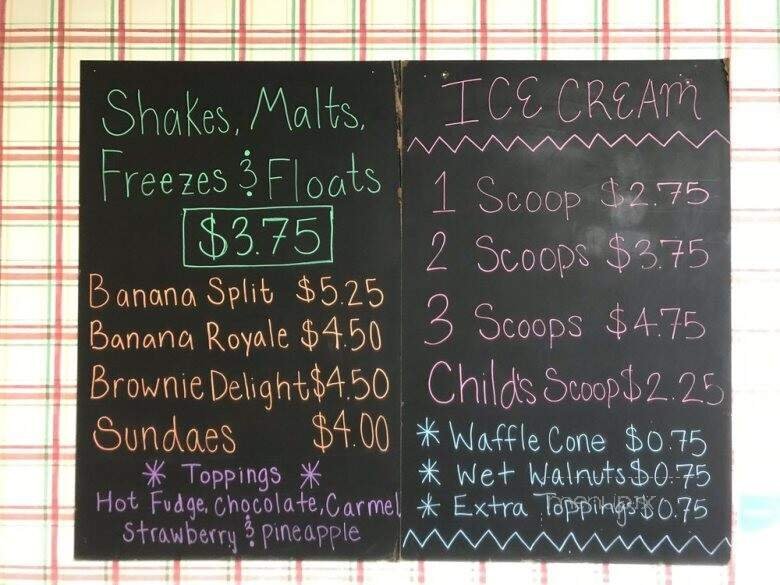 Shakes, Malts,
Freezes & Floats
$3.75
Banana Split $5.25
Banana Royale $4.50
Brownie Delight $4.50
Sundaes $4.00
* Toppings *
Hot Fudge, Chocolate, Carmel
Strawberry & Pineapple
ICE CREAM
1 Scoop $2.75
2 Scoops $3.75
3 Scoops $4.75
Child's Scoop $2.25
* Waffle Cone $0.75
* Wet Walnuts $0.75
* Extra Toppings $0.75